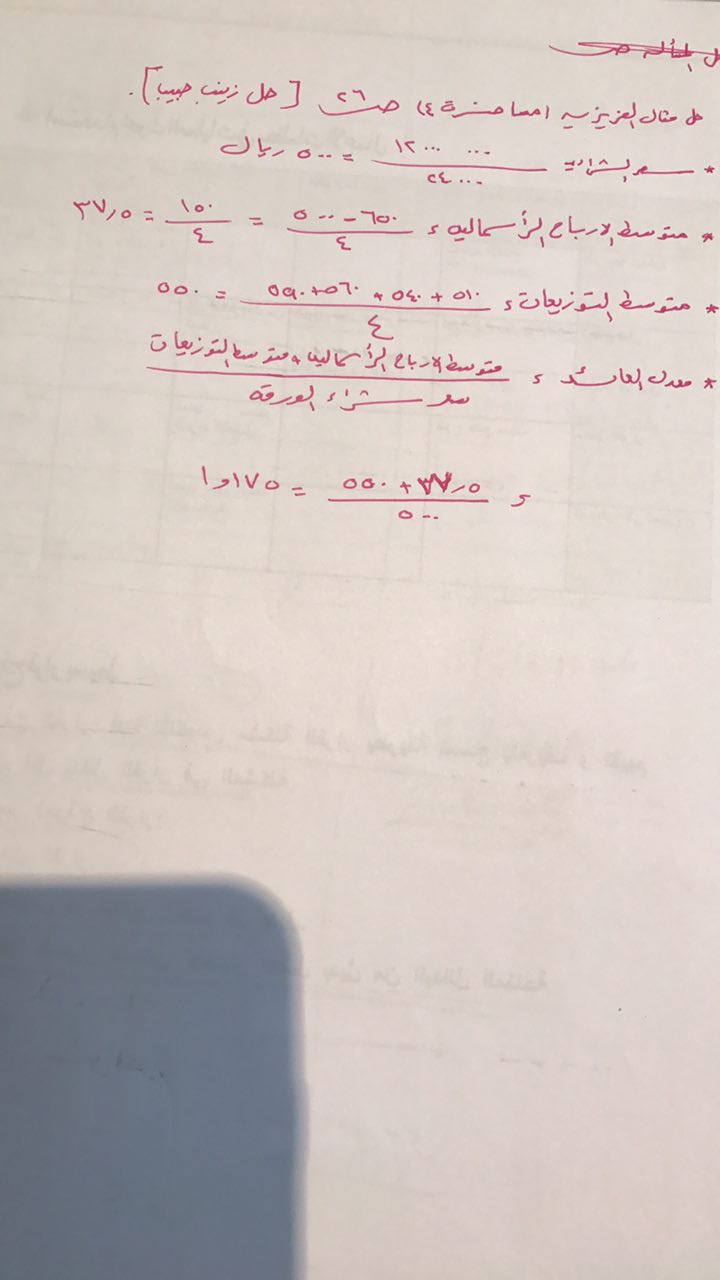 حل المسألة ص
حل مثال العزيزيه (محاضرة ٤) ص ٢٦ [حل زينب حبيب].
* سعر الشراء = ١٢٠٠٠ ٠٠٠ / ٢٤٠٠٠ = ٥٠٠ ريال
* متوسط الارباح الرأسماليه = ٦٥٠ - ٥٠٠ / ٤ = ١٥٠ / ٤ = ٣٧٫٥
* متوسط التوزيعات = ٥١٠ + ٥٤٠ + ٥٦٠ + ٥٩٠ / ٤ = ٥٥٠
* معدل العائد = متوسط الارباح الرأسماليه + متوسط التوزيعات / سعر شراء الورقه
= ٣٧٫٥ + ٥٥٠ / ٥٠٠ = ١٧٥و١